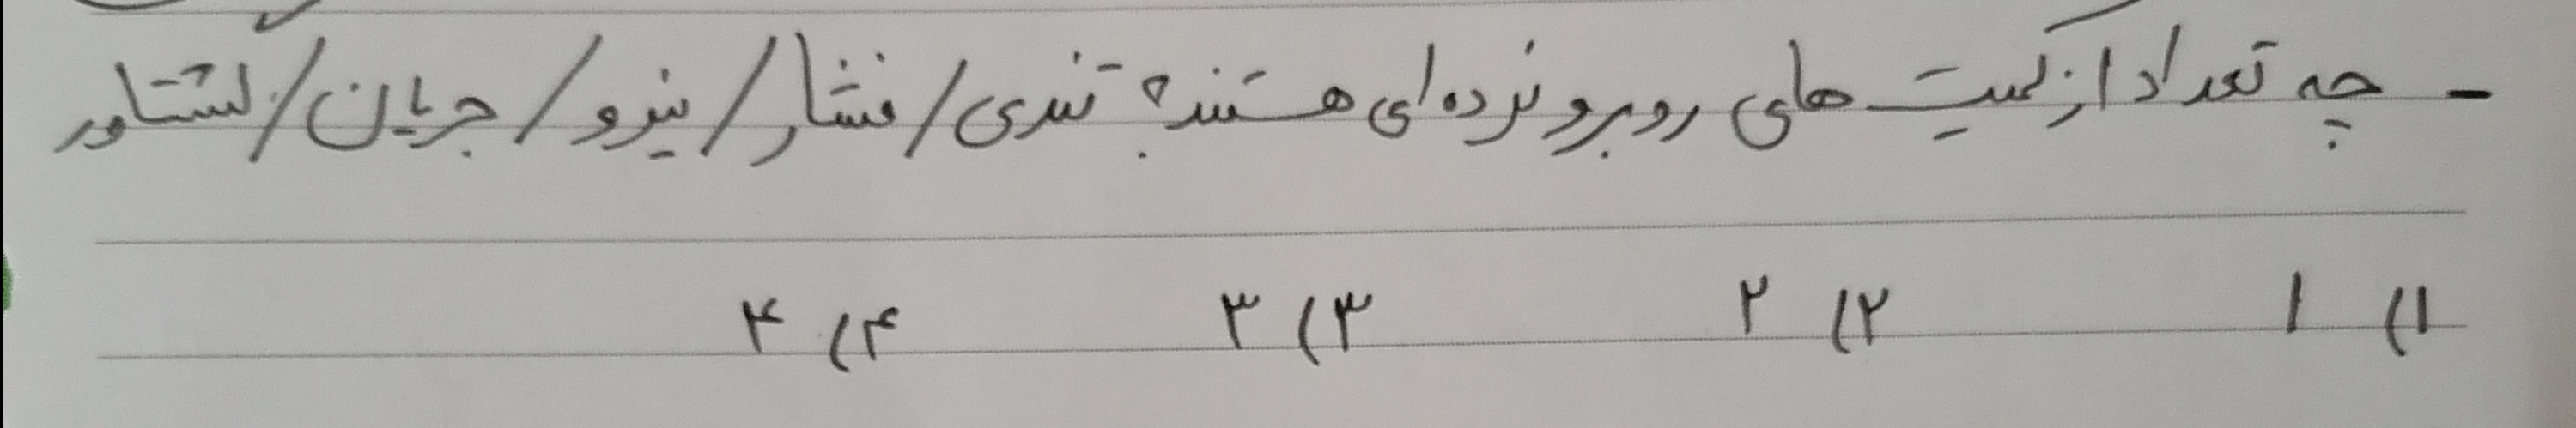 - چه تعداد از کمیت های روبرو نرده ای هستند؟ تندی / فشار / نیرو / جریان / گشتاور
۱) ۱ ۲) ۲ ۳) ۳ ۴) ۴